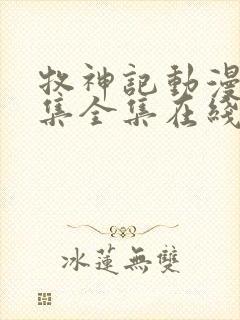 牧神記動漫
集全集在綫
冰蓮無雙